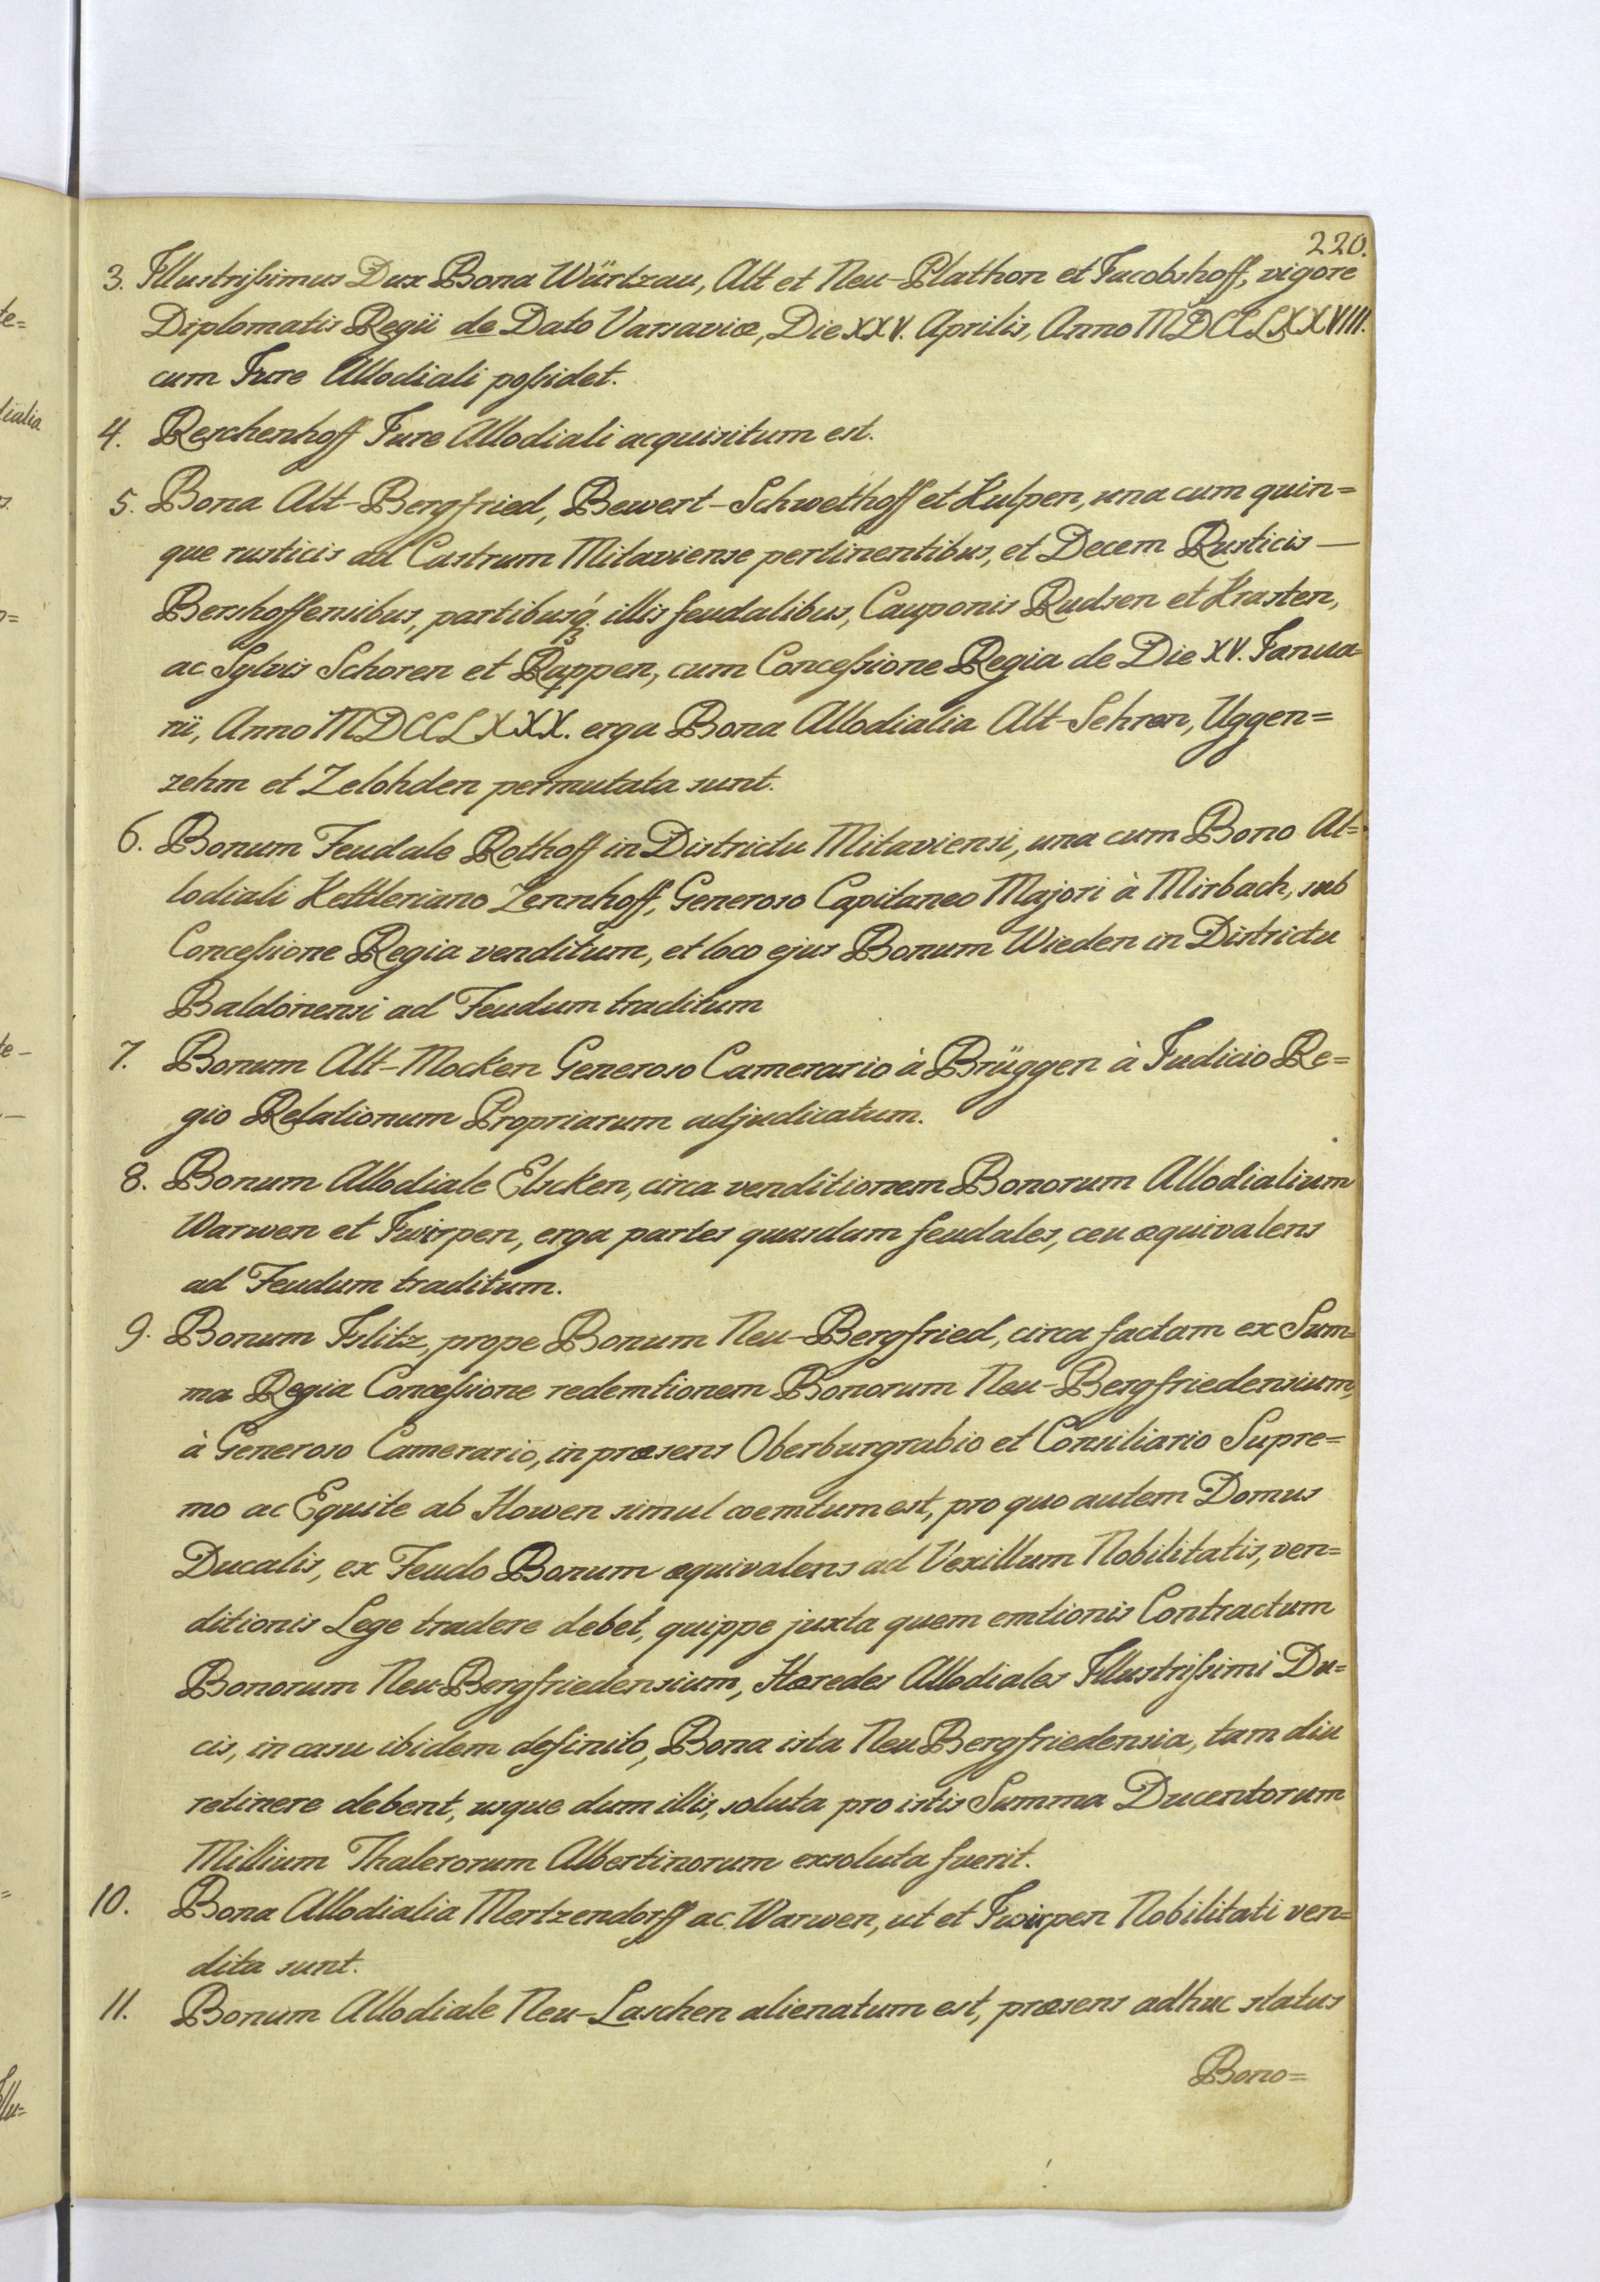 220.
3. Illustrißimus Dux Bona Würtzau, Alt et Neu-Plathon et Jacobshoff, vigore
Diplomatis Regii de Dato Varsaviæ, Die XXV. Aprilis, Anno MDCCLXXVIII.
cum Jure Allodiali poßidet.
4. Reschenhoff Jure Allodiali acquisitum est.
5. Bona Alt-Bergfried, Bewert-Schwethoff et Kulpen, una cum quin=
que rusticis ad Castrum Mitaviense pertinentibus, et Decem Rusticis —
Bershoffensibus, partibusq́3 illis feudalibus, Cauponis Rudsen et Krasten,
ac Sylvis Schoren et Rappen, cum Conceßione Regia de Die XV. Janua=
rii, Anno MDCCLXXX. erga Bona Allodialia Alt-Sehren, Uggen=
zehm et Zelohden permutata sunt.
6. Bonum Feudale Rothoff in Districtu Mitaviensi, una cum Bono Al=
lodiali Kettleriano Zennhoff, Generoso Capitaneo Majori à Mirbach, sub
Conceßione Regia venditum, et loco ejus Bonum Wieden in Districtu
Baldonensi ad Feudum traditum
7. Bonum Alt-Mocken Generoso Camerario à Brüggen à Judicio Re=
gio Relationum Propriarum adjudicatum.
8. Bonum Allodiale Elscken, circa venditionem Bonorum Allodialium
Warwen et Fwirpen, erga partes quasdam feudales, ceu æquivalens
ad Feudum traditum.
9. Bonum Islitz, prope Bonum Neu-Bergfried, circa factam ex Sum=
ma Regia Conceßione redemtionem Bonorum Neu-Bergfriedensium,
à Generoso Camerario, in præsens Oberburgrabio et Consiliario Supre=
mo ac Equite ab Howen simul coemtum est, pro quo autem Domus
Ducalis, ex Feudo Bonum æquivalens ad Vexillum Nobilitatis, ven=
ditionis Lege tradere debet, quippe juxta quem emtionis Contractum
Bonorum Neu-Bergfriedensium, Hæredes Allodiales Illustrißimi Du=
cis, in casu ibidem definito, Bona ista Neu Bergfriedensia, tam diu
retinere debent, usque dum illis, soluta pro istis Summa Ducentorum
Millium Thalerorum Albertinorum exsoluta fuerit.
10. Bona Allodialia Mertzendorff ac Warwen, ut et Fwirpen Nobilitati ven=
dita sunt.
11. Bonum Allodiale Neu-Laschen alienatum est, præsens adhuc status
Bono=